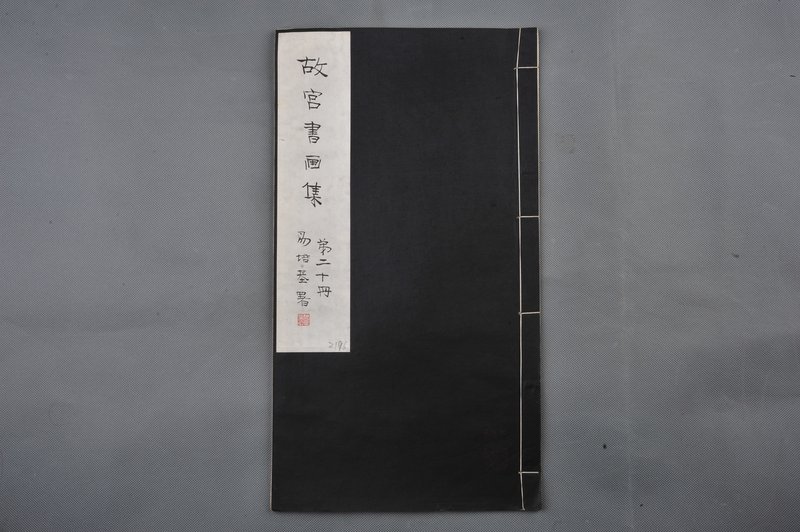 故宫書画集
第二十冊
易培基署
2196